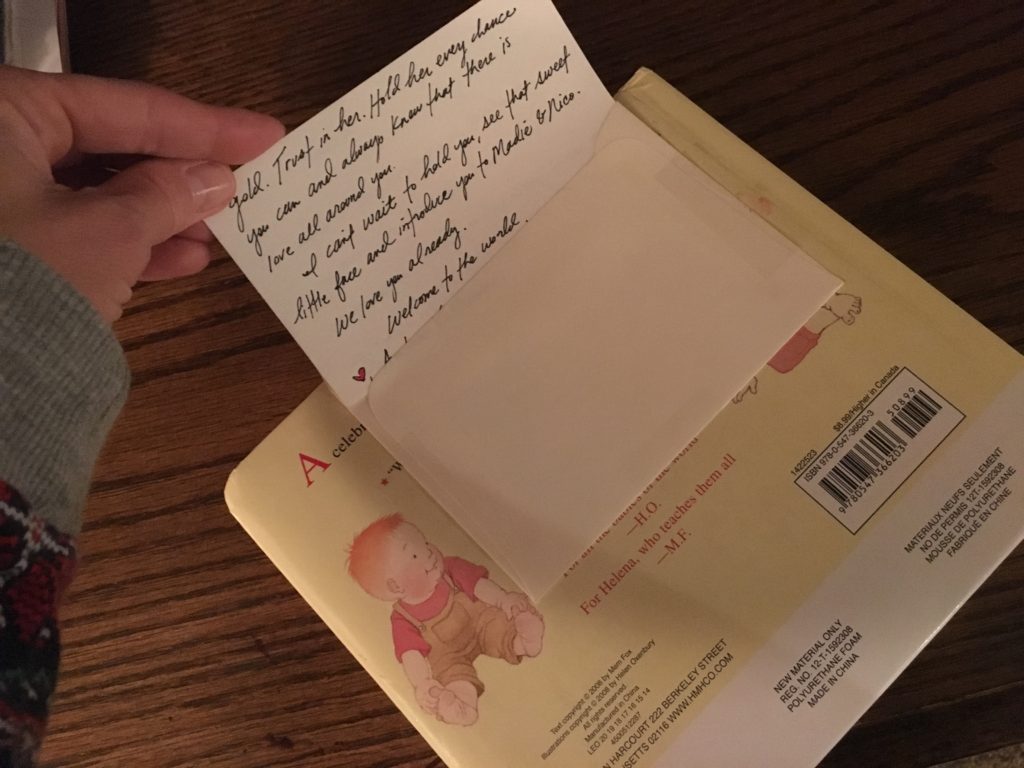 gold. Trust in her. Hold her every chance
you can and always know that there is
love all around you.
I can't wait to hold you, see that sweet
little face and introduce you to Madie & Nico.
We love you already.
Welcome to the world,
A celeb
"W
of the world
—H.O.
For Helena, who teaches them all
—M.F.
Text copyright © 2008 by Mem Fox
Illustrations copyright © 2008 by Helen Oxenbury
All rights reserved
Manufactured in China
LEO 20 19 18 17 16 15 14
4500512287
N HARCOURT 222 BERKELEY STREET
SETTS 02116 WWW.HMHCO.COM
$8.99/Higher in Canada
1422523
ISBN 978-0-547-36620-3
50899
9 780547 366203
MATERIAUX NEUFS SEULEMENT
NO DE PERMIS 12T-1592308
MOUSSE DE POLYURETHANE
FABRIQUÉ EN CHINE
NEW MATERIAL ONLY
REG. NO. 12-T-1592308
POLYURETHANE FOAM
MADE IN CHINA